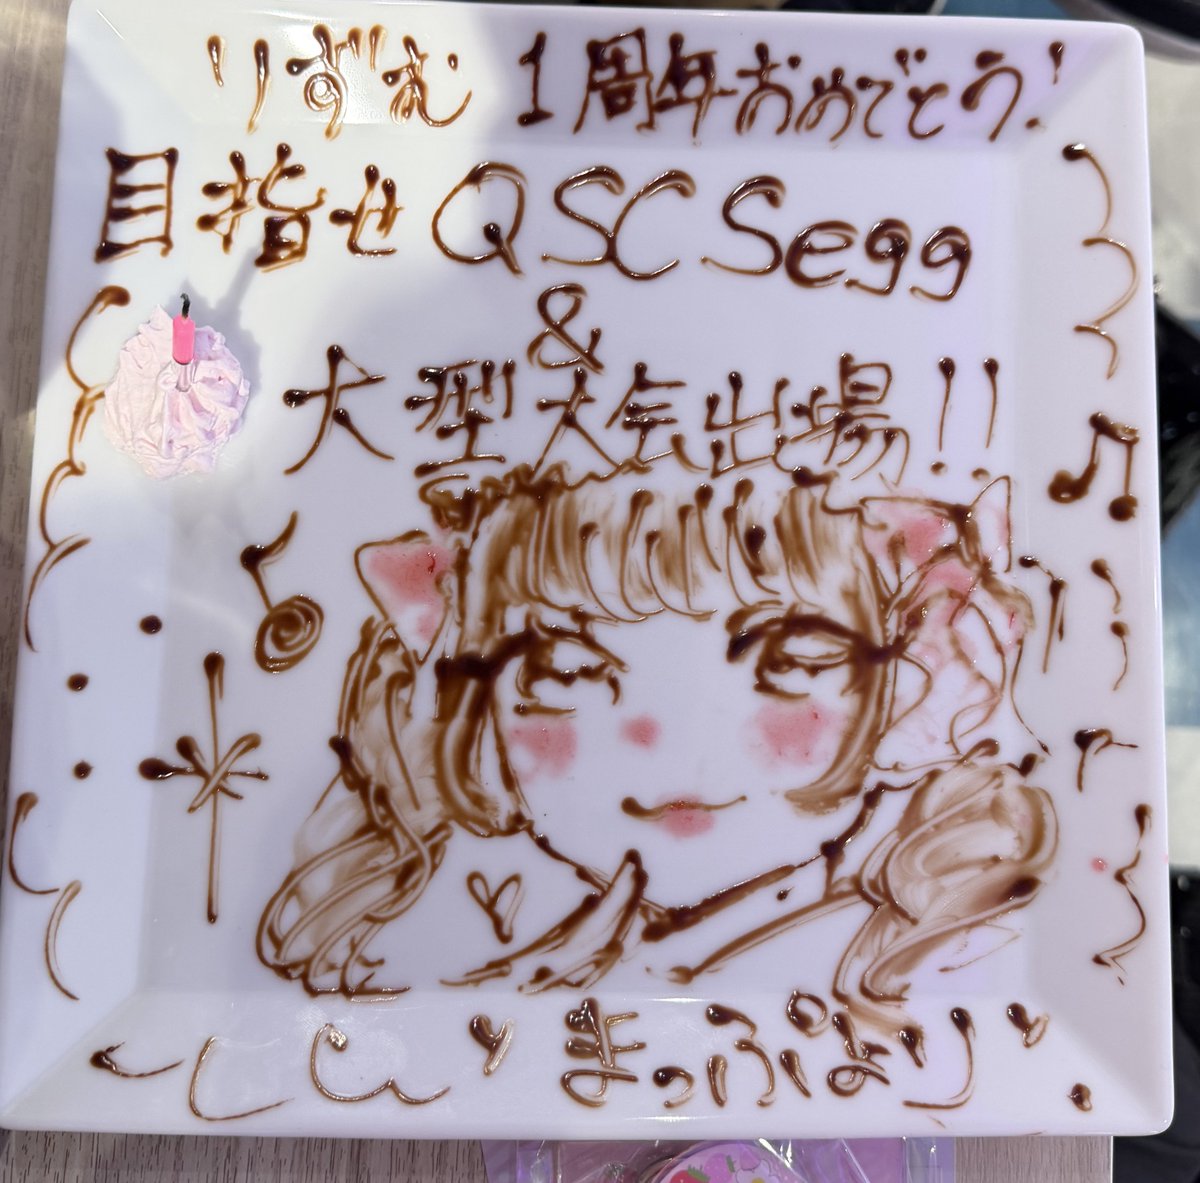 りずむ 1周年おめでとう!
目指せ QSCSegg
&
大型大会出場!!
まっぷより